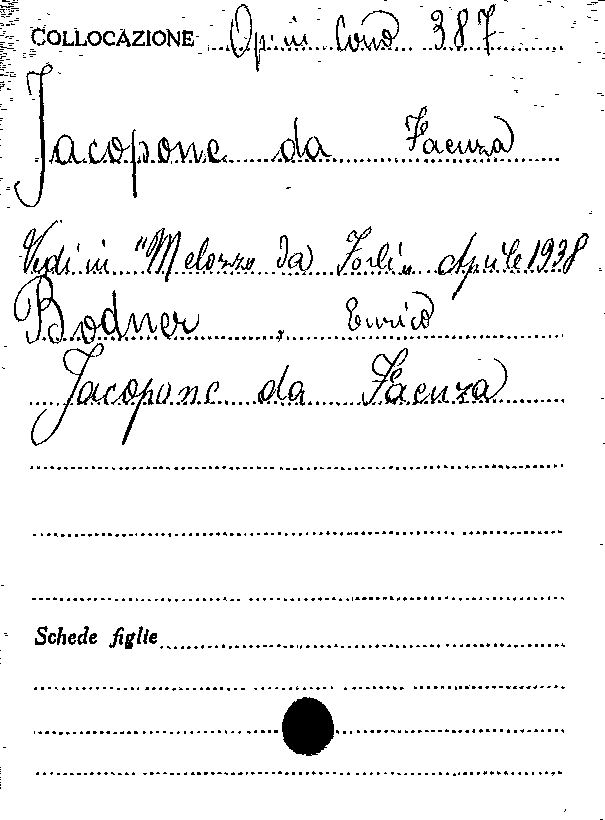 COLLOCAZIONE Op. in Cons 387
Jacopone da Faenza
Vedi in "Melozzo da Forlì" Aprile 1938
Bodner, Enrico
Jacopone da Faenza
Schede figlie